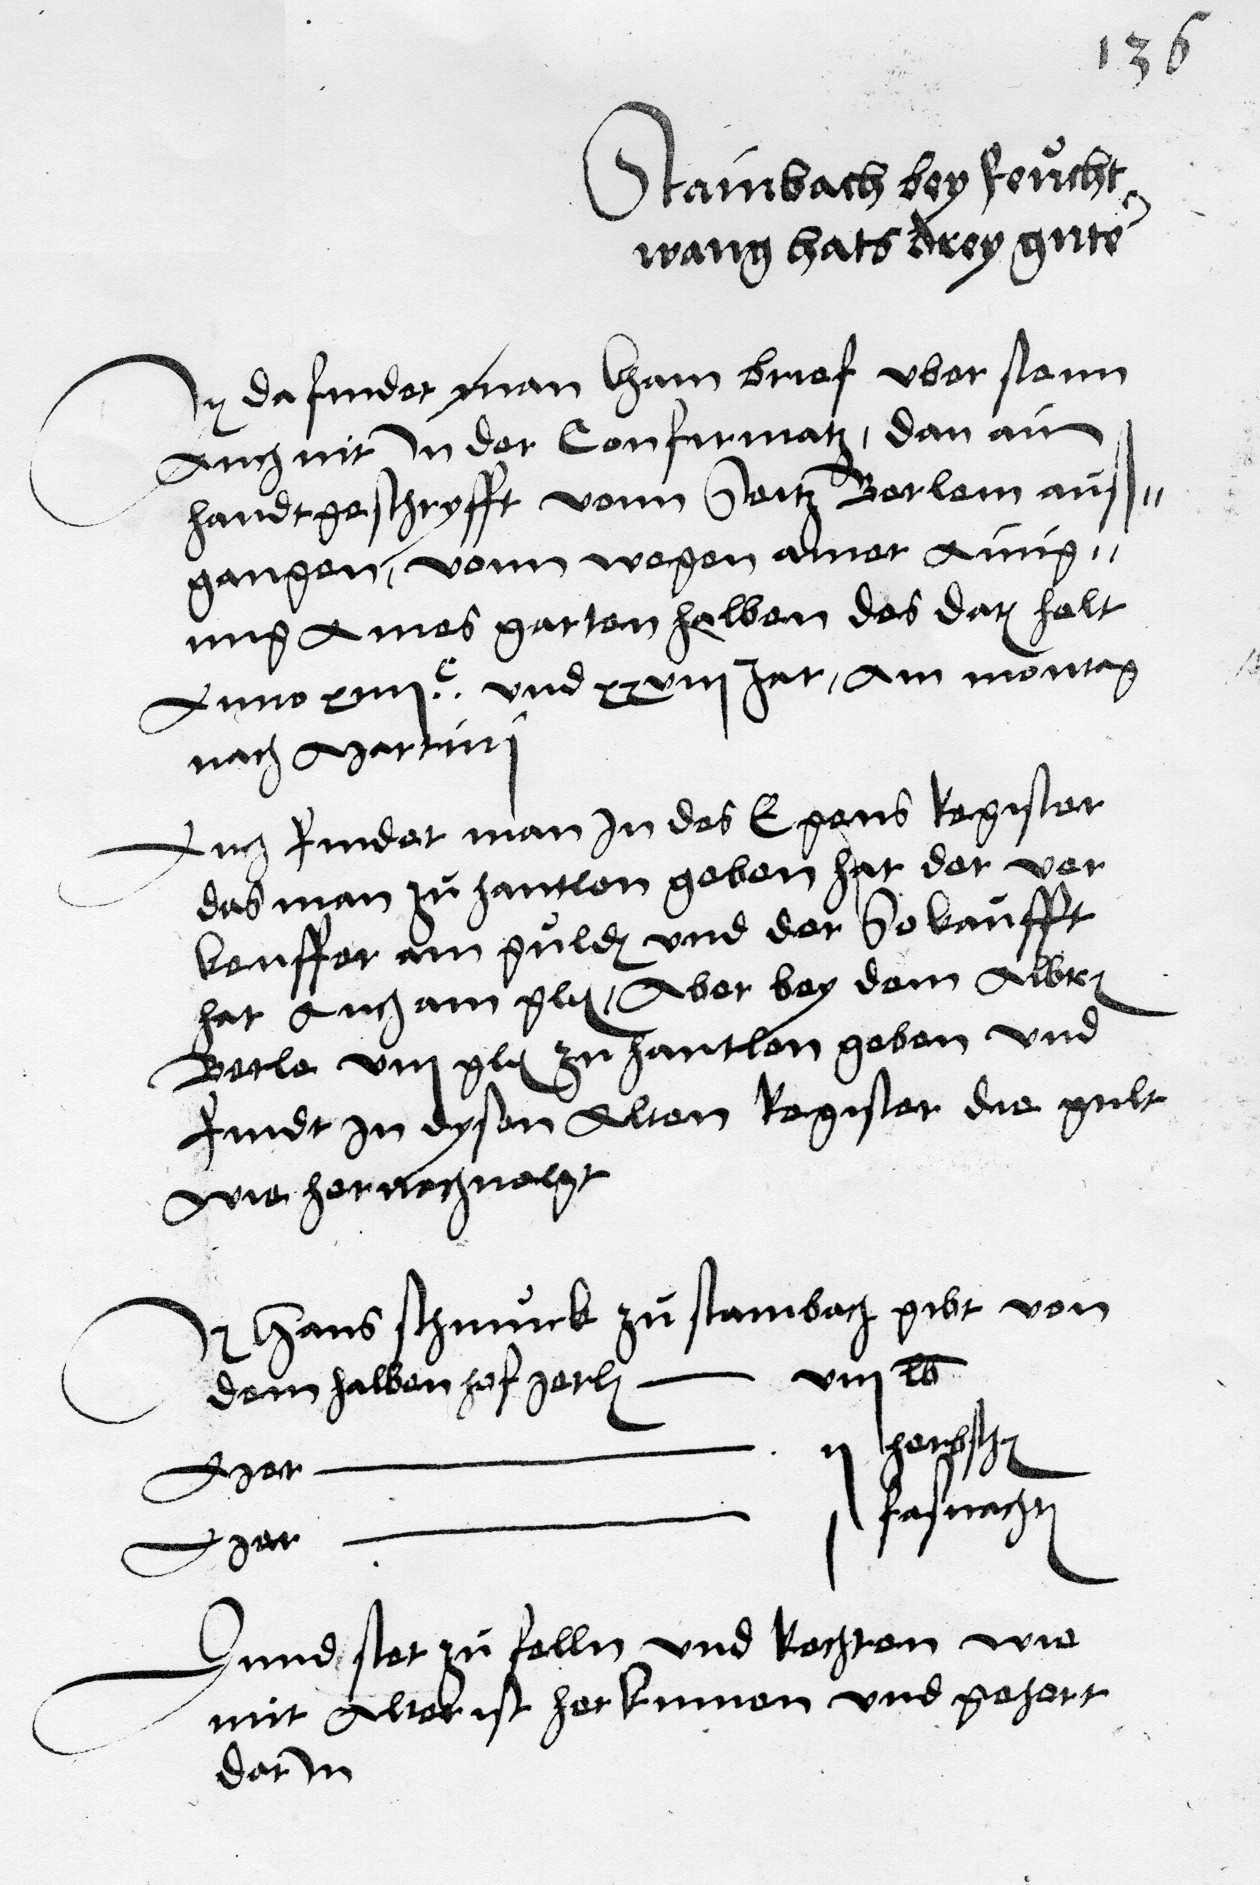 136
Stainbach bey feucht
wang hats drey gute
It da findet man kham brief vber stenn
Auch nit In der Confirmatz, dan ain
handtgeschryfft vonn Seitz Berlem auß„
gangen, vonn wegen ainer Ainig„
ung Aines garten halben des dat helt
Anno xiiii c. vnd xxviii Jar, Am montag
nach Martini
Auch findet man In des Epens Register
das man zu hantlon geben hat der ver
keuffer ain guld vnd der So kaufft
hat Auch ain gld, Aber bey dem Albr
Berle viii gld zu hantlon geben vnd
findt In dysen Alten Register die gult
Wie hernachuolgt
It Hans schmuck zu stainbach gibt von
dem halben hof Jerl — viii lb
Aper — . ii herbsth
Aper — i fasnacht
Vnnd stet zu felln vnd Rechten wie
mit Alter ist herkumen vnd gehert
dar In